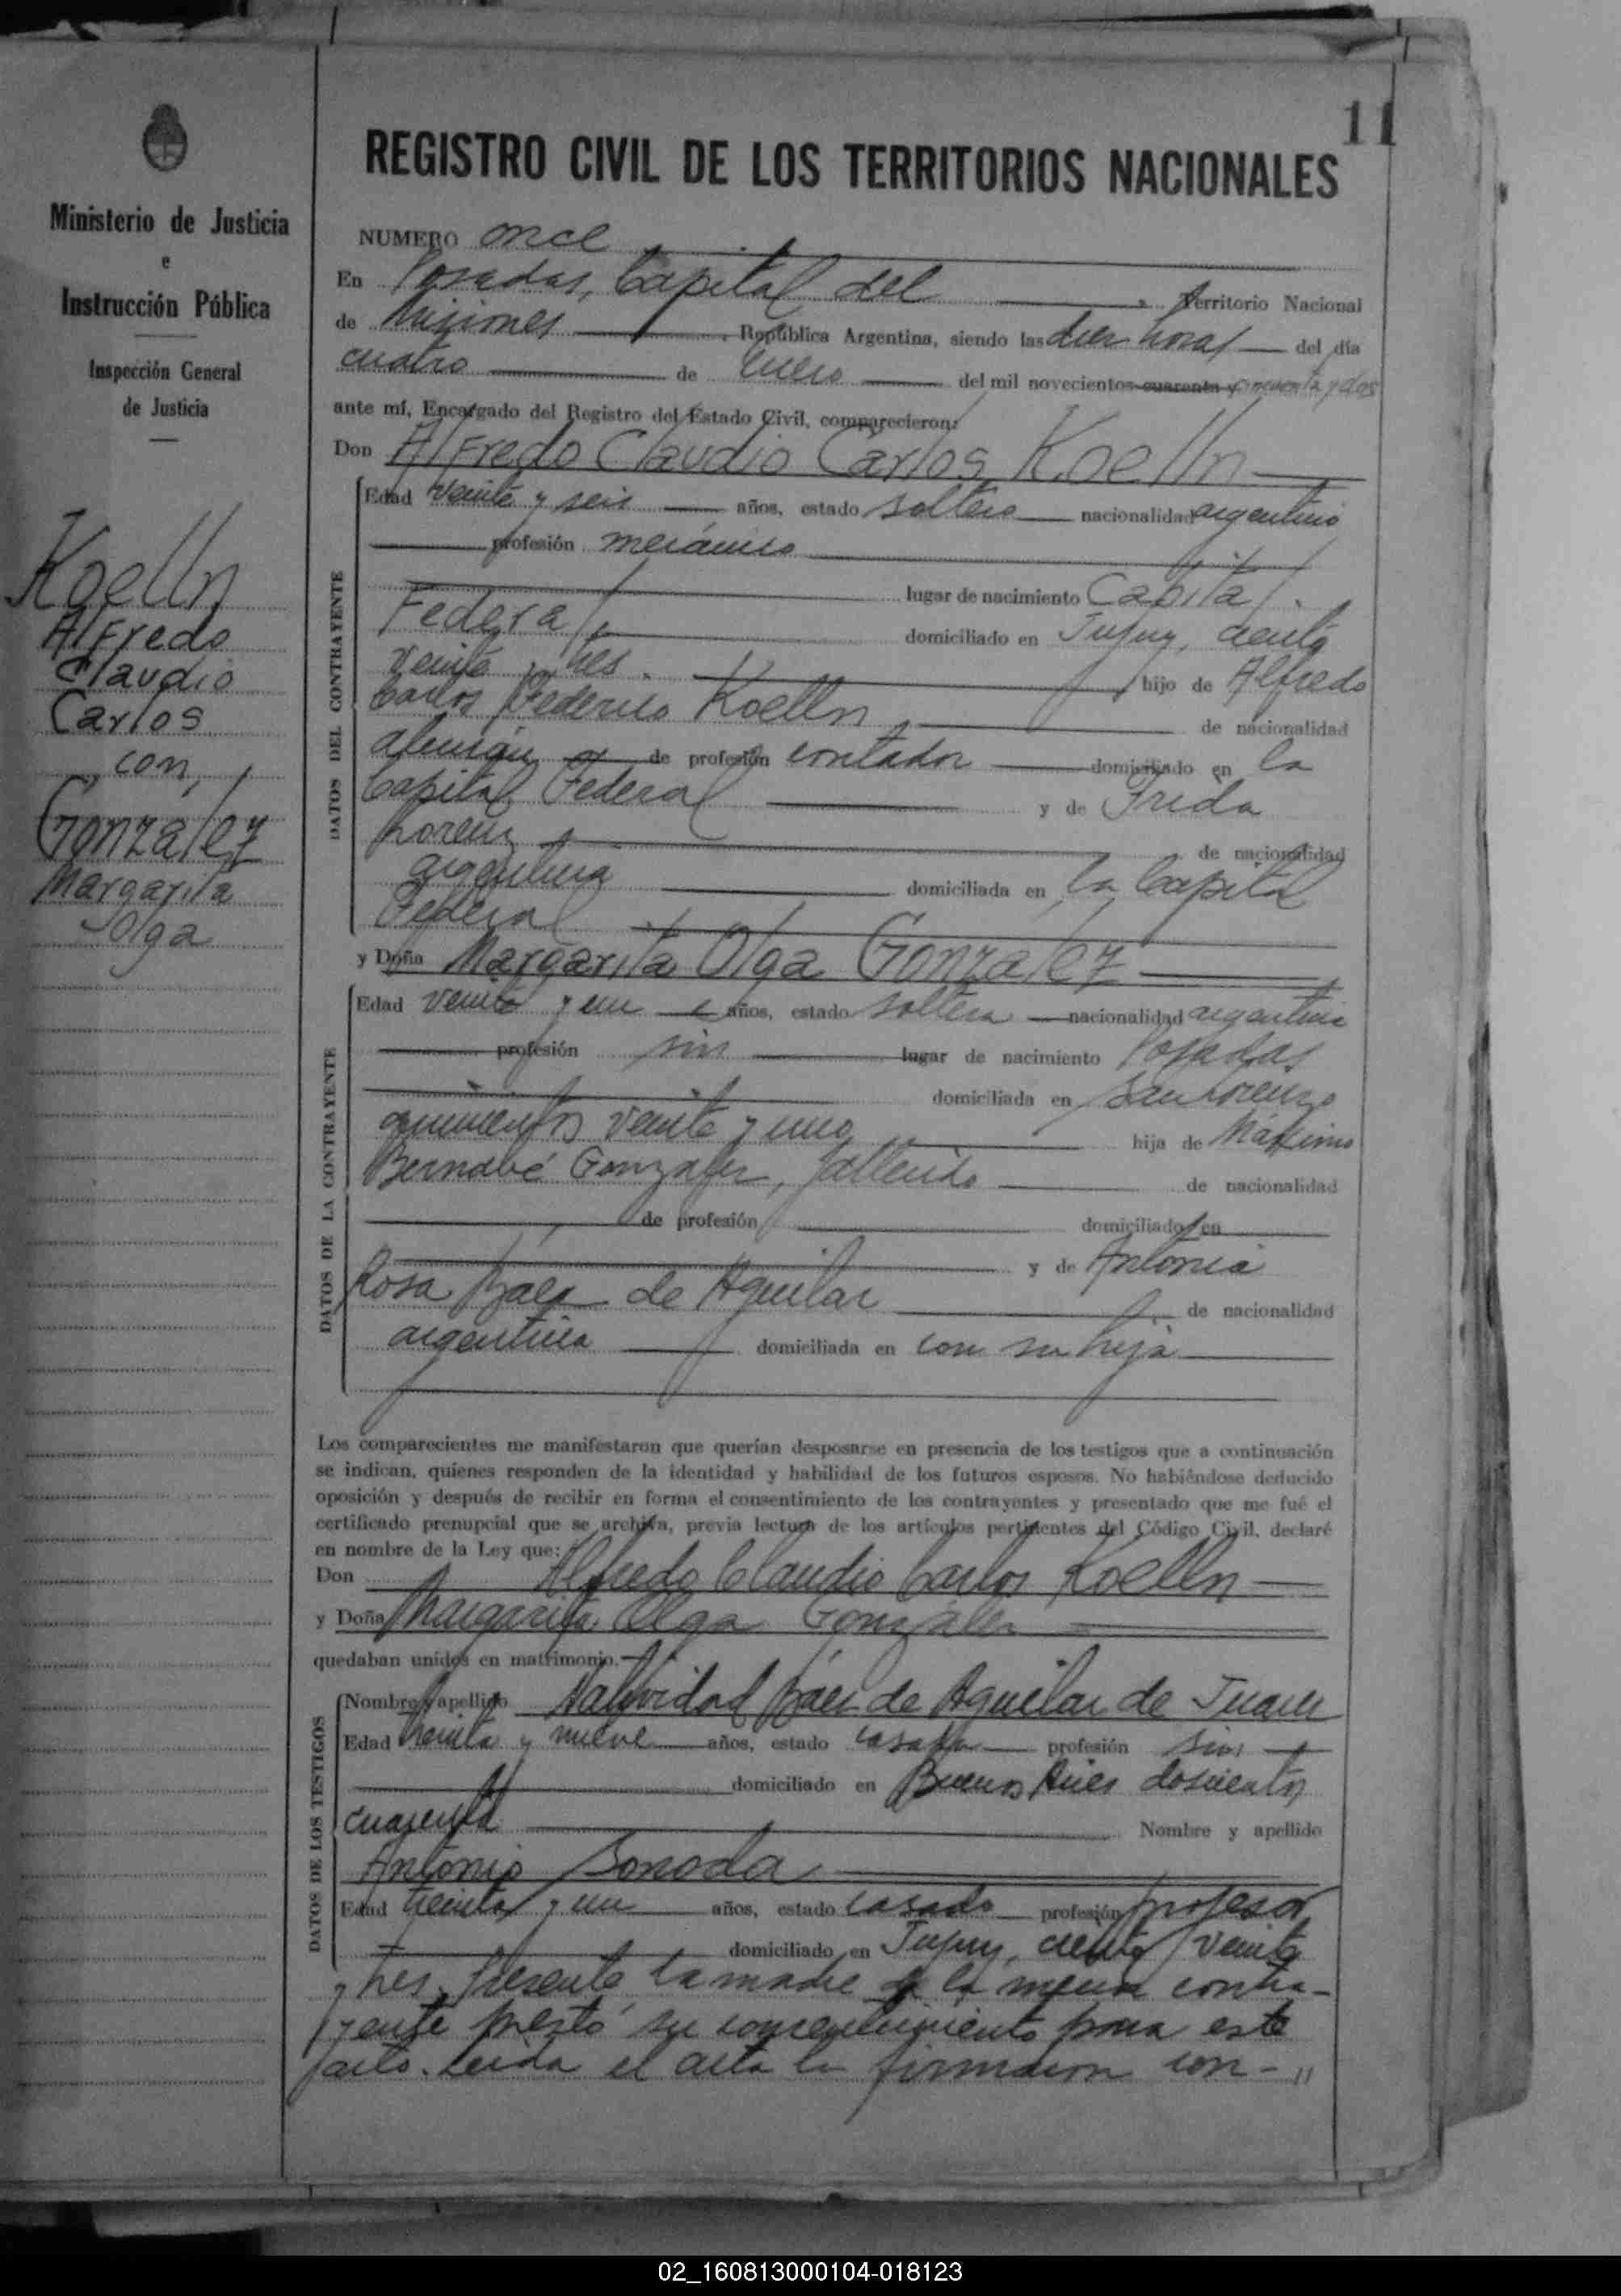 11
Ministerio de Justicia
e
Instrucción Pública
Inspección General
de Justicia
Koelln
Alfredo
Claudio
Carlos
con,
Gonzalez
Margarita
Olga
REGISTRO CIVIL DE LOS TERRITORIOS NACIONALES
NUMERO once
En Posadas, Capital del Territorio Nacional
de Misiones República Argentina, siendo las diez horas del día
cuatro de Enero del mil novecientos cuarenta y cincuenta y dos
ante mí, Encargado del Registro del Estado Civil, comparecieron:
Don Alfredo Claudio Carlos Koelln
DATOS DEL CONTRAYENTE
Edad veinte y seis años, estado soltero nacionalidad argentino
profesión mecánico
lugar de nacimiento Capital
Federal domiciliado en Jujuy, ciento
veinte y tres. hijo de Alfredo
Carlos Federico Koelln de nacionalidad
alemán de profesión contador domiciliado en la
Capital Federal y de Frida
Lorenz de nacionalidad
argentina domiciliada en la Capital
Federal
y Doña Margarita Olga Gonzalez
DATOS DE LA CONTRAYENTE
Edad veinte y un años, estado soltera nacionalidad argentina
profesión sin lugar de nacimiento Posadas
domiciliada en San Lorenzo
quinientos veinte y uno hija de Máximo
Bernabé Gonzalez, fallecido de nacionalidad
de profesión domiciliado en
y de Antonia
Rosa Báez de Aguilar de nacionalidad
argentina domiciliada en con su hija
Los comparecientes me manifestaron que querían desposarse en presencia de los testigos que a continuación
se indican, quienes responden de la identidad y habilidad de los futuros esposos. No habiéndose deducido
oposición y después de recibir en forma el consentimiento de los contrayentes y presentado que me fué el
certificado prenupcial que se archiva, previa lectura de los artículos pertinentes del Código Civil, declaré
en nombre de la Ley que:
Don Alfredo Claudio Carlos Koelln
y Doña Margarita Olga Gonzalez
quedaban unidos en matrimonio.
DATOS DE LOS TESTIGOS
Nombre y apellido Natividad Báez de Aguilar de Juarez
Edad treinta y nueve años, estado casada profesión sin
domiciliado en Buenos Aires doscientos
cuarenta Nombre y apellido
Antonio Sonoda
Edad treinta y un años, estado casado profesión profesor
domiciliado en Jujuy, ciento veinte
y tres. Presente la madre de la menor contra-
yente prestó su consentimiento para este
acto. Leida el acta la firmaron con-"
02_160813000104-018123